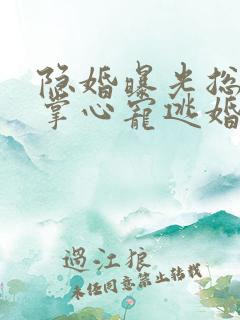 隐婚曝光总
掌心宠逃婚
過江狼
未经同意禁止转载